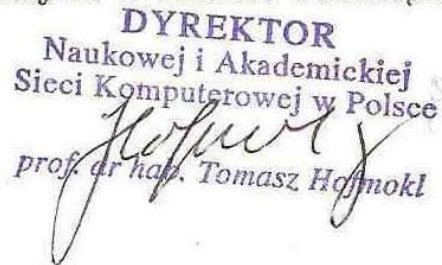 DYREKTOR
Naukowej i Akademickiej
Sieci Komputerowej w Polsce
prof. dr hab. Tomasz Hofmokl